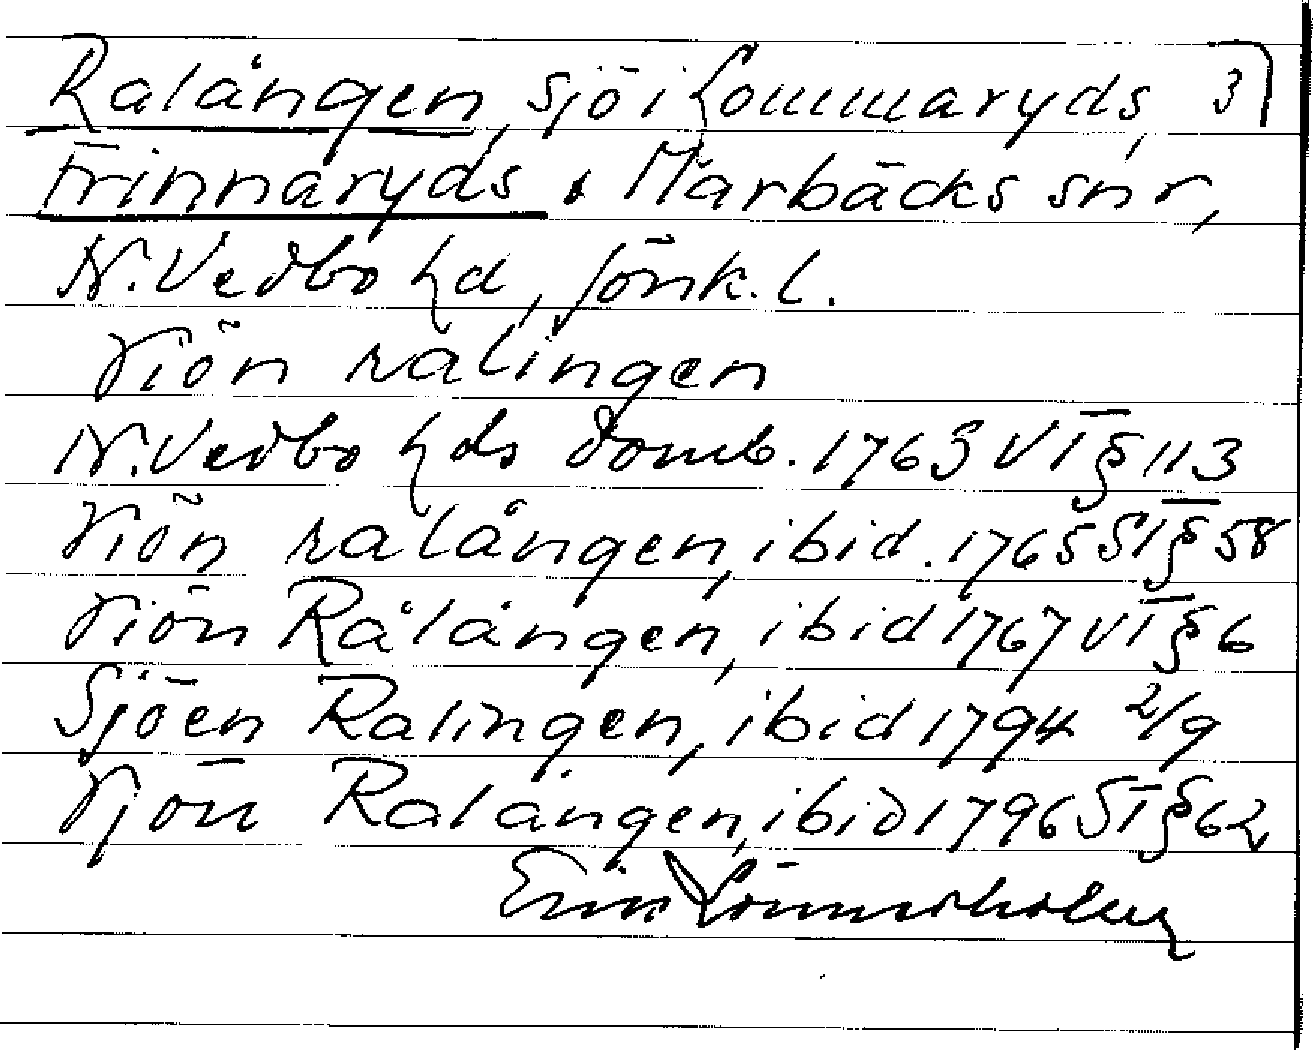 Ralången, sjö i Lommaryds, 3
Frinnaryds & Marbäcks snr,
N. Vedbo hd, Jönk. l.
Siön ralingen
N. Vedbo hds domb. 1763 VT § 113
Siön ralången, ibid. 1765 ST § 58
Siön Rålången, ibid 1767 VT § 6
Sjöen Ralingen, ibid 1794 2/9
Sjön Ralången, ibid 1796 ST § 62
Erik Lönnerholm